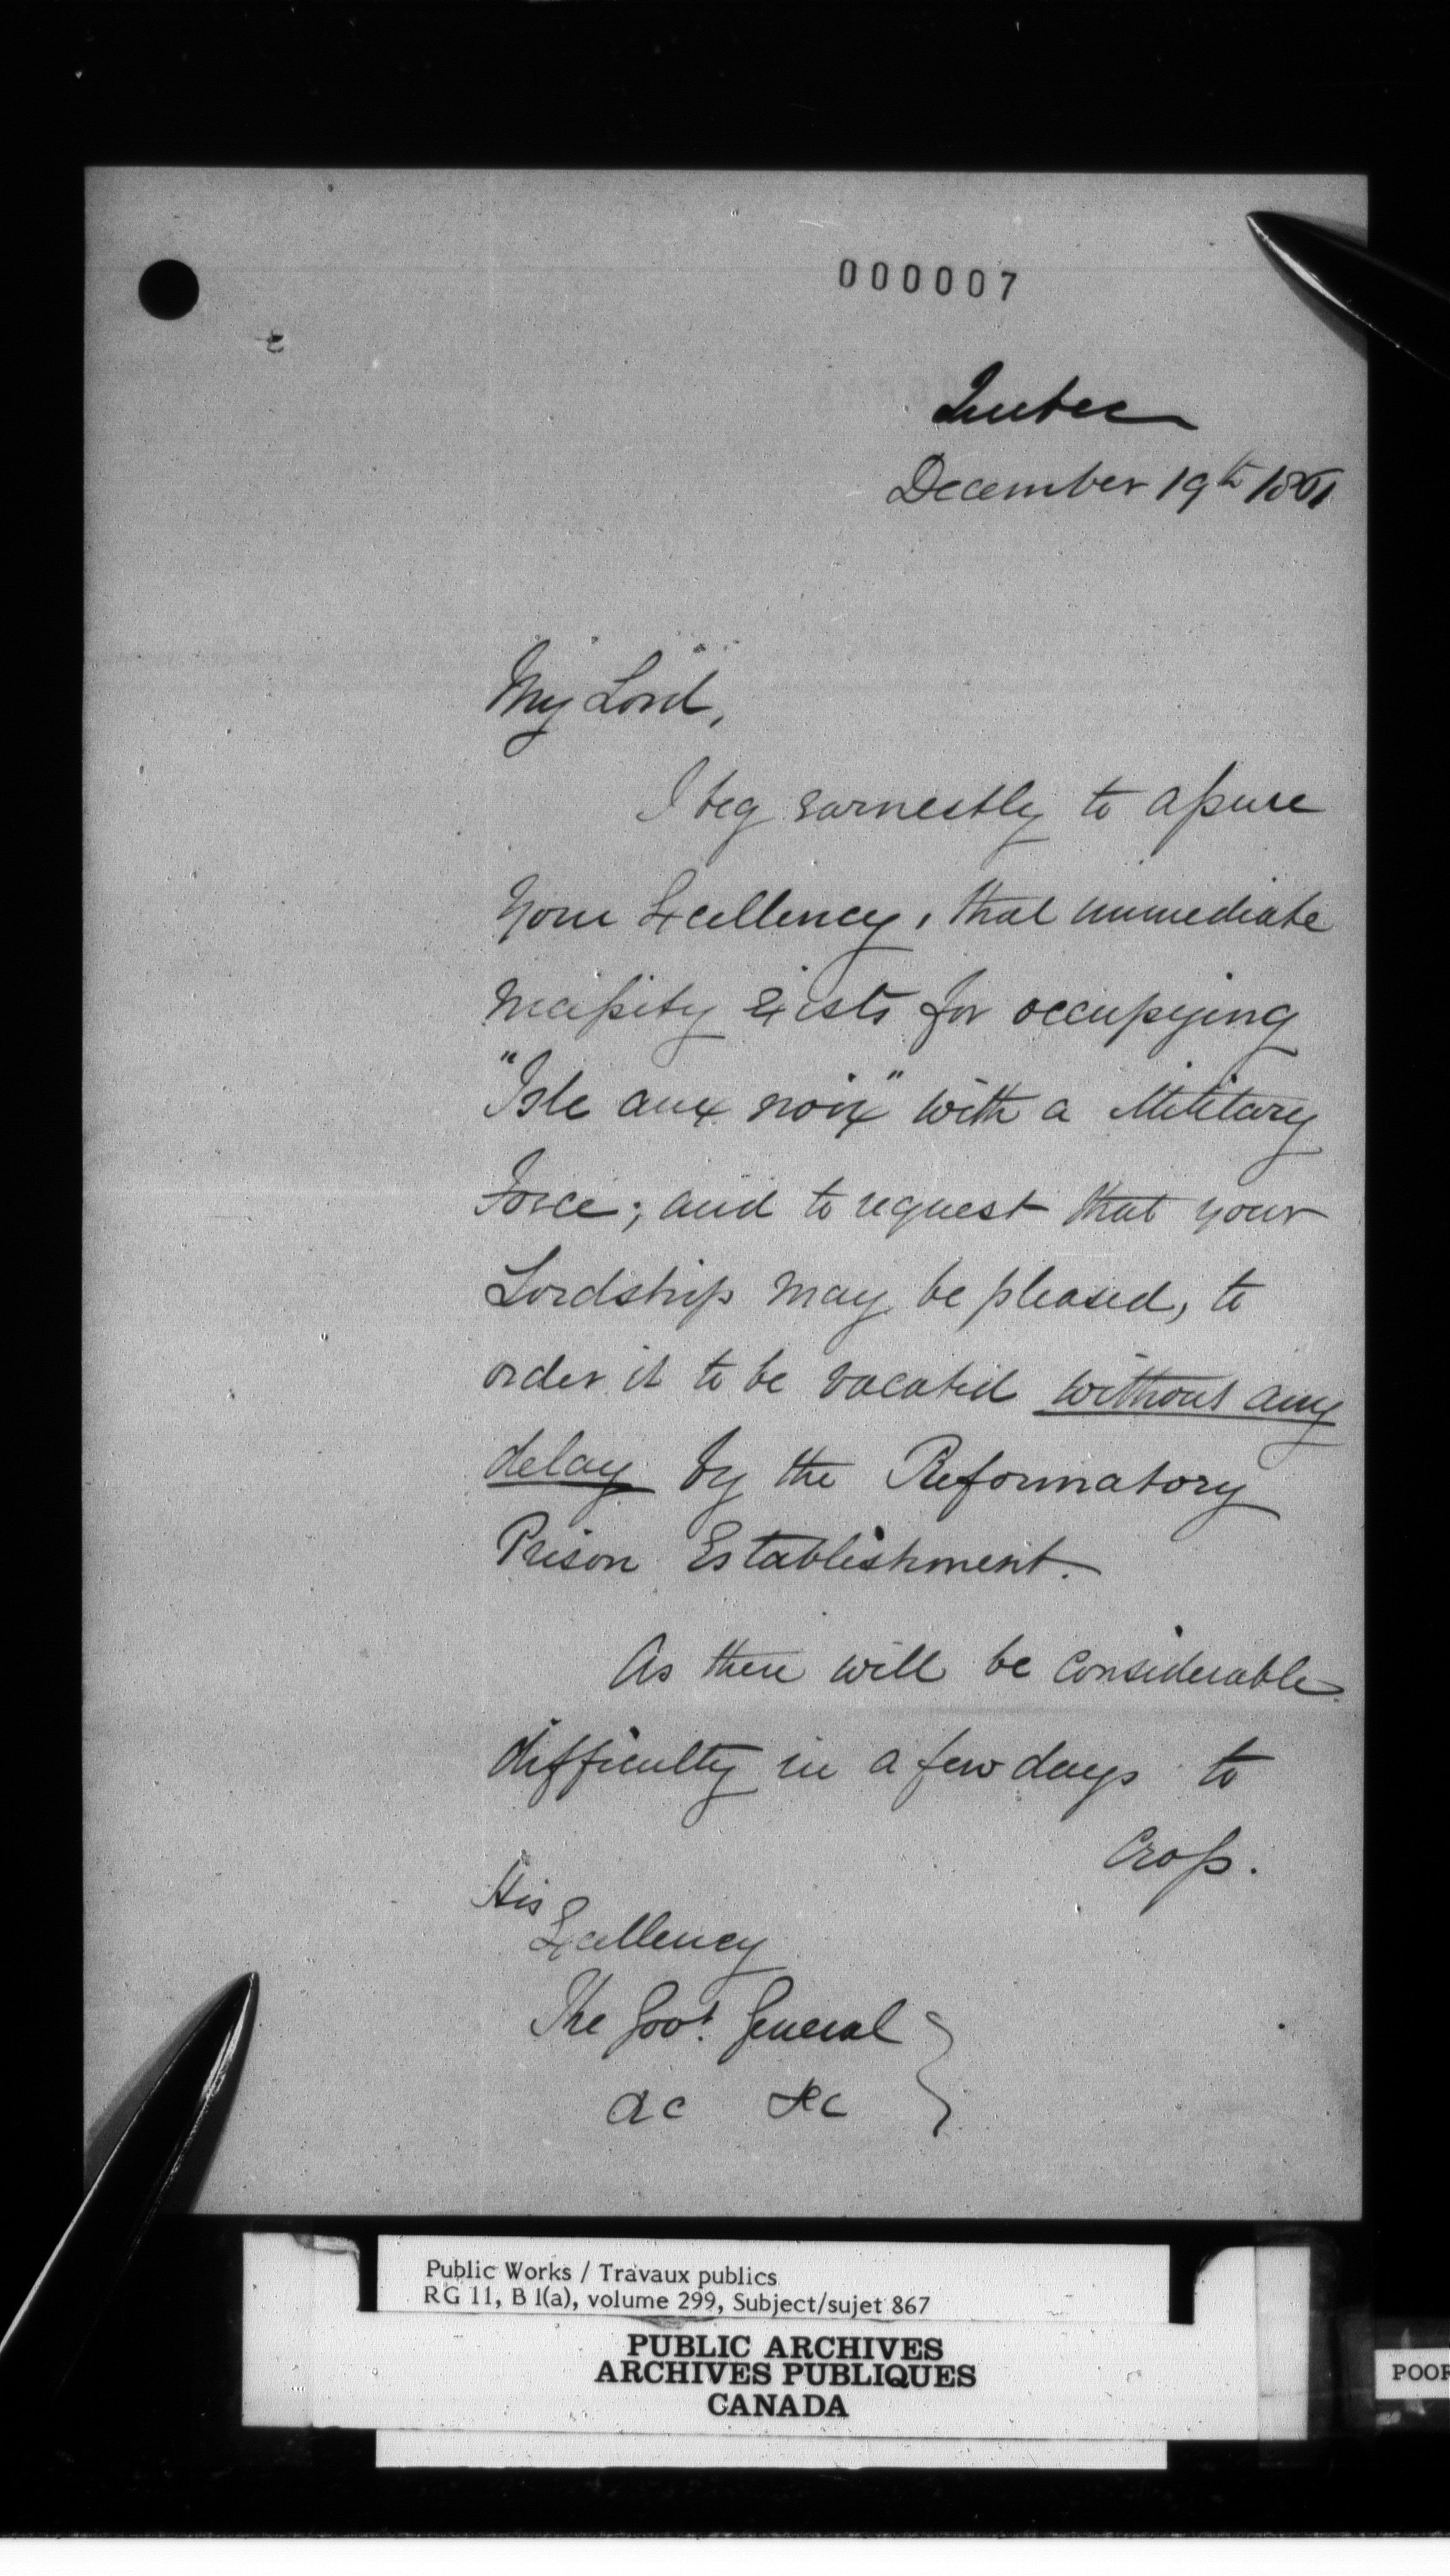 000007
Quebec
December 19th 1861
My Lord,
I beg earnestly to assure
Your Excellency, that immediate
necessity exists for occupying
"Isle aux noix" with a Military
Force; and to request that your
Lordship may be pleased, to
order it to be vacated without any
delay by the Reformatory
Prison Establishment.
As there will be considerable
difficulty in a few days to
Cross.
His
Excellency
The Govr. General
&c &c
Public Works / Travaux publics
RG 11, B 1(a), volume 299, Subject/sujet 867
PUBLIC ARCHIVES
ARCHIVES PUBLIQUES
CANADA
POOR